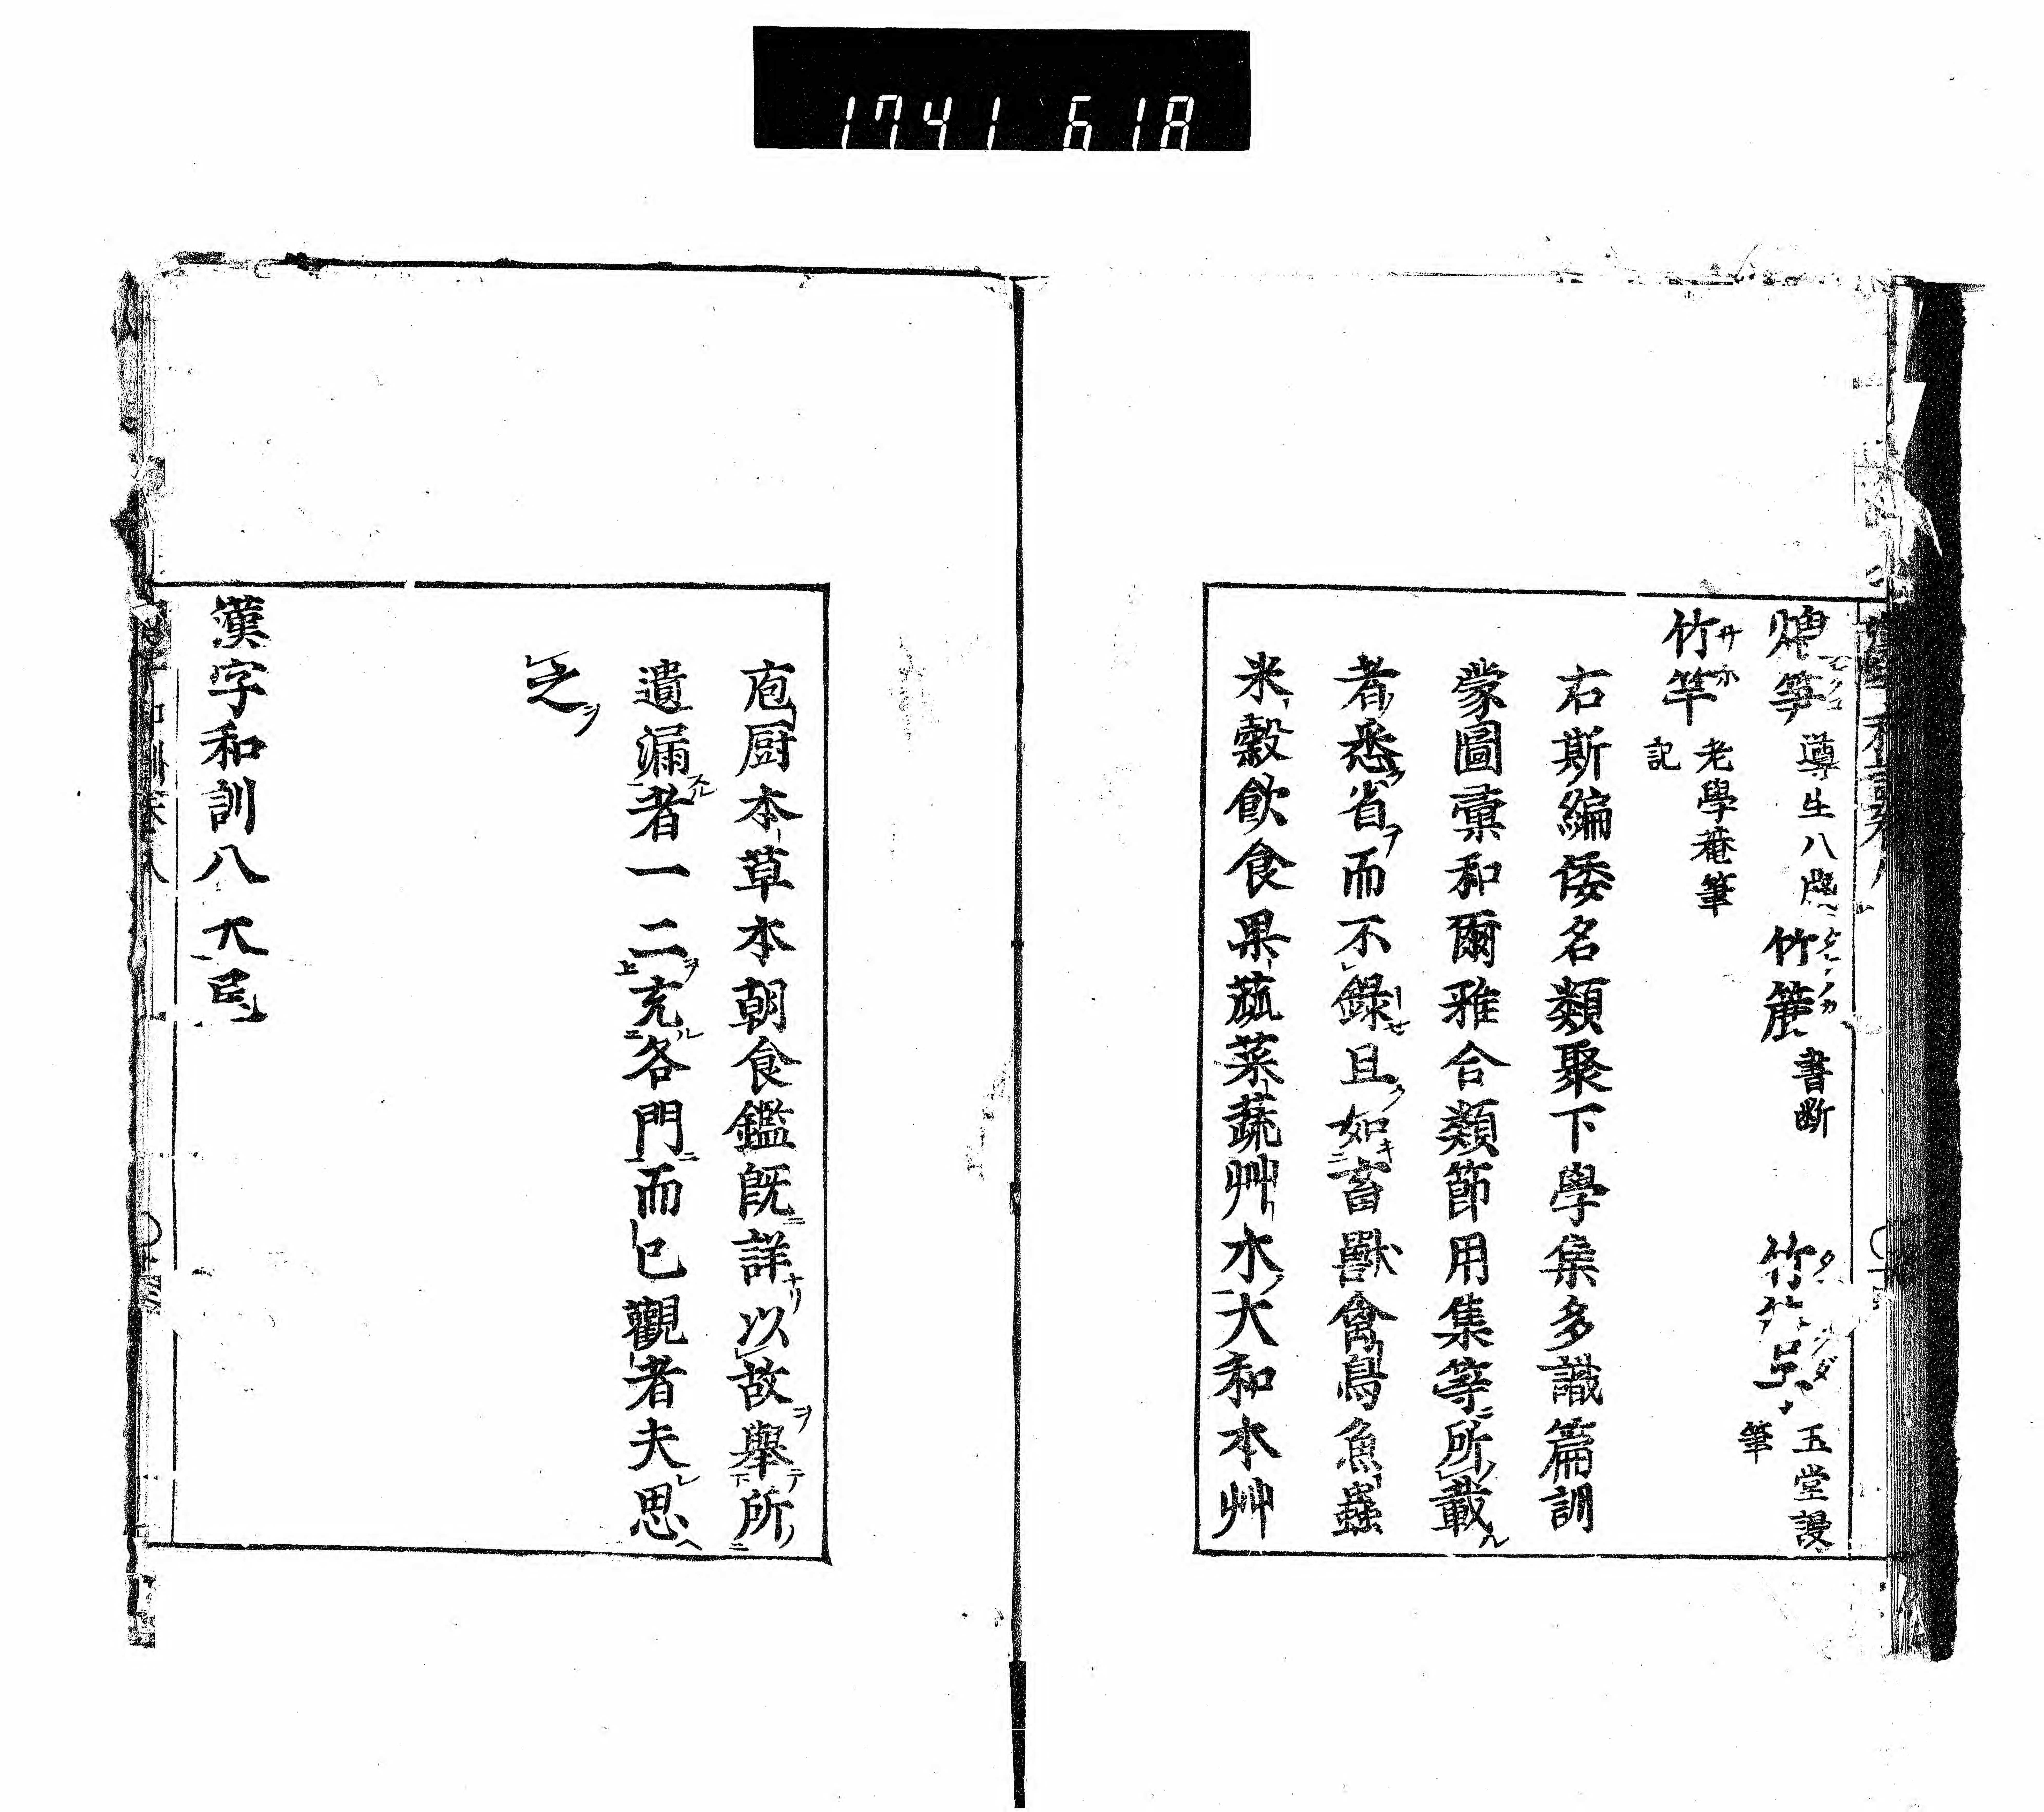 1741 618
筍 導生八牋 竹簏 書斷 竹 玉堂謾筆
竹竿 サホ 老學菴筆記
右斯編倭名類聚下學集多識篇訓
蒙圖彙和爾雅合類節用集等所載
者悉省而不錄且如畜獸禽鳥魚蟲
米穀飲食果蓏菜蔬艸木大和本艸
庖厨本草本朝食鑑既詳以故舉所
遺漏者一二充各門而已觀者夫思
之
漢字和訓八大尾